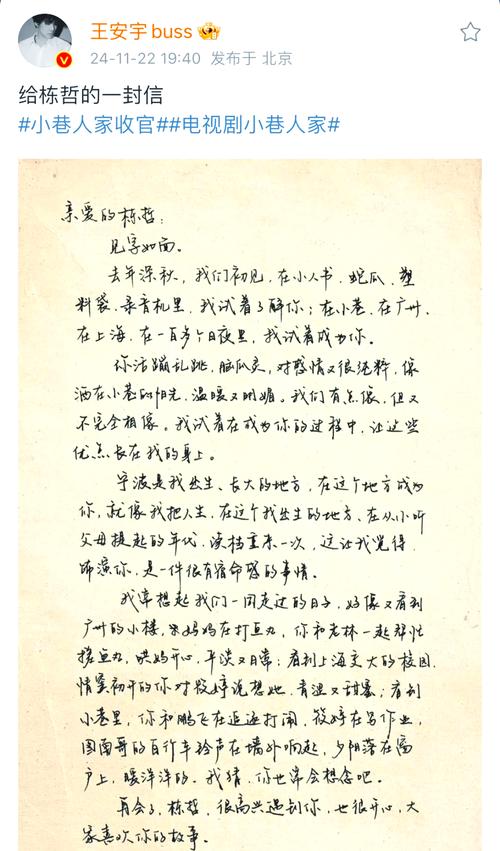 王安宇buss
24-11-22 19:40 发布于 北京
给栋哲的一封信
#小巷人家收官##电视剧小巷人家#
亲爱的栋哲:
见字如面。
去年深秋,我们初见,在小人书、蛇瓜、塑
料袋、录音机里,我试着了解你;在小巷、在广州、
在上海,在一百多个日夜里,我试着成为你。
你活蹦乱跳,脑瓜灵,对感情又很纯粹,像
洒在小巷的阳光,温暖又明媚。我们有点像,但又
不完全相像。我试着在成为你的过程中,让这些
优点长在我的身上。
宁波是我出生、长大的地方,在这个地方成为
你,就像我把人生,在这个我出生的地方、在从小听
父母提起的年代,读档重来一次,这让我觉得,
饰演你,是一件很有宿命感的事情。
我常想起我们一同走过的日子,好像又看到
广州的小楼,宋妈妈在打鱼丸,你和老林一起帮忙
搓鱼丸,哄妈开心,平淡又日常;看到上海交大的校园,
情窦初开的你对筱婷说想她,青涩又甜蜜;看到
小巷里,你和鹏飞在追逐打闹,筱婷在写作业,
图南哥的自行车铃声在墙外响起,夕阳落在窗
户上,暖洋洋的。我猜,你也常会想念吧。
再会了,栋哲,很高兴遇到你,也很开心,大
家喜欢你的故事。